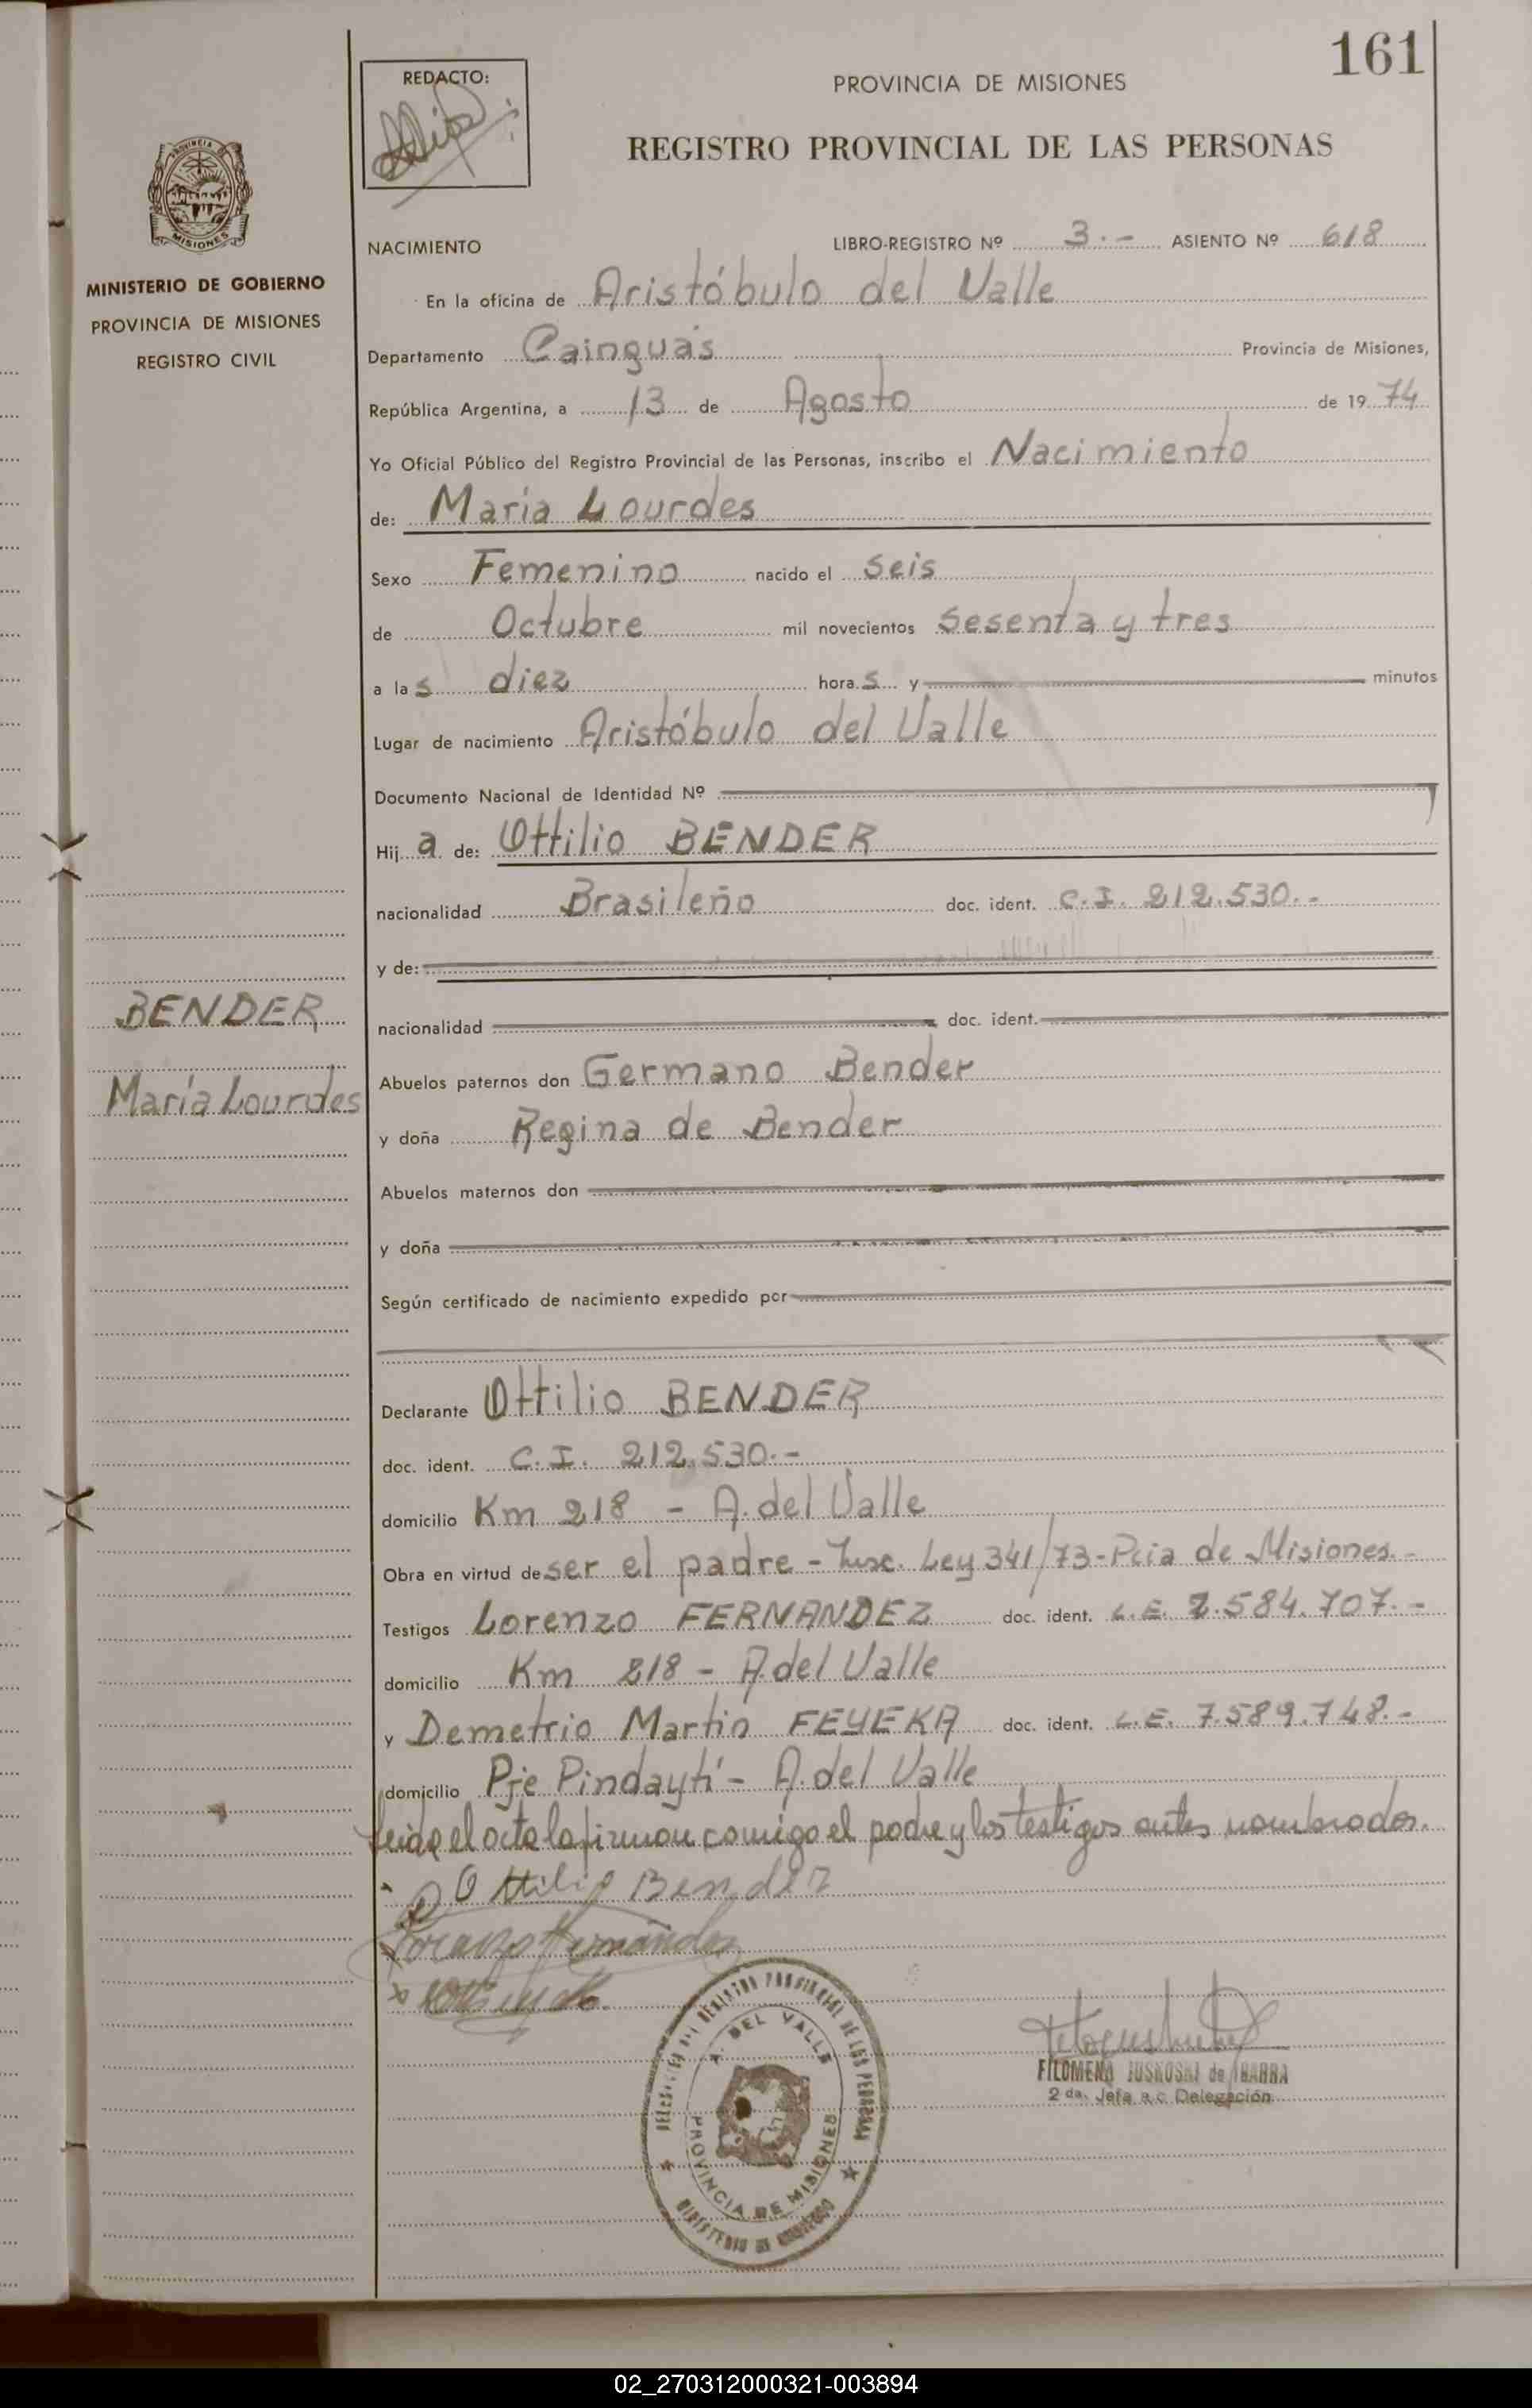 161
REDACTO:
PROVINCIA DE MISIONES
REGISTRO PROVINCIAL DE LAS PERSONAS
MISIONES
MINISTERIO DE GOBIERNO
PROVINCIA DE MISIONES
REGISTRO CIVIL
NACIMIENTO LIBRO-REGISTRO Nº 3.- ASIENTO Nº 618
En la oficina de Aristóbulo del Valle
Departamento Cainguás Provincia de Misiones,
República Argentina, a 13 de Agosto de 1974
Yo Oficial Público del Registro Provincial de las Personas, inscribo el Nacimiento
de: María Lourdes
Sexo Femenino nacido el seis
de Octubre mil novecientos sesenta y tres
a las diez horas y minutos
Lugar de nacimiento Aristóbulo del Valle
Documento Nacional de Identidad Nº
Hija de: Ottilio BENDER
nacionalidad Brasileño doc. ident. C.I. 212.530.-
y de:
nacionalidad doc. ident.
BENDER
María Lourdes
Abuelos paternos don Germano Bender
y doña Regina de Bender
Abuelos maternos don
y doña
Según certificado de nacimiento expedido por
Declarante Ottilio BENDER
doc. ident. C.I. 212.530.-
domicilio Km 218 - A. del Valle
Obra en virtud de ser el padre - Insc. Ley 341/73-Pcia de Misiones.-
Testigos Lorenzo FERNANDEZ doc. ident. L.E. 7.584.707.-
domicilio Km 218 - A. del Valle
y Demetrio Martin FEYEKA doc. ident. L.E. 7.589.748.-
domicilio Pje Pindaytí - A. del Valle
Leida el acta la firman conmigo el padre y los testigos antes nombrados.
Ottilio Bender
DEL REGISTRO PROVINCIAL DE LAS PERSONAS
A. DEL VALLE
PROVINCIA DE MISIONES
MINISTERIO DE GOBIERNO
FILOMENA JUSKOSKI de IBARRA
2 da. Jefa a.c. Delegación
02_270312000321-003894